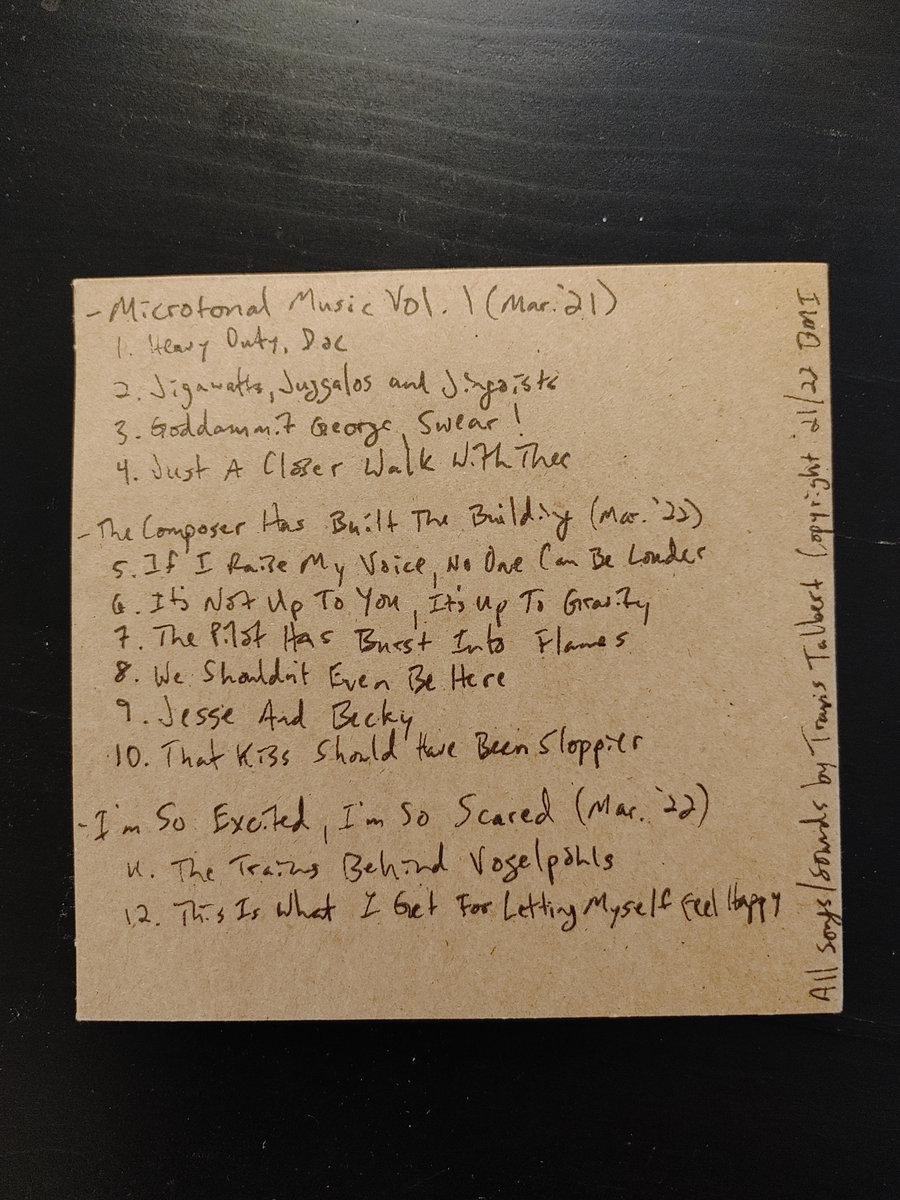 - Microtonal Music Vol. 1 (Mar. '21)
1. Heavy Duty, Doc
2. Jigawatts, Juggalos and Jingoists
3. Goddammit George, Swear!
4. Just A Closer Walk With Thee
- The Composer Has Built The Building (Mar. '22)
5. If I Raise My Voice, No One Can Be Louder
6. It's Not Up To You, It's Up To Gravity
7. The Pilot Has Burst Into Flames
8. We Shouldn't Even Be Here
9. Jesse And Becky
10. That Kiss Should Have Been Sloppier
- I'm So Excited, I'm So Scared (Mar. '22)
11. The Trains Behind Vogelpohls
12. This Is What I Get For Letting Myself Feel Happy
All songs/sounds by Travis Talbert Copyright '21/'22 BMI